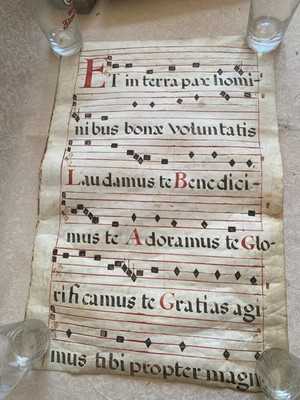 ET in terra pax homi-
nibus bonæ voluntatis
Laudamus te Benedici-
mus te Adoramus te Glo-
rificamus te Gratias agi
mus tibi propter magn